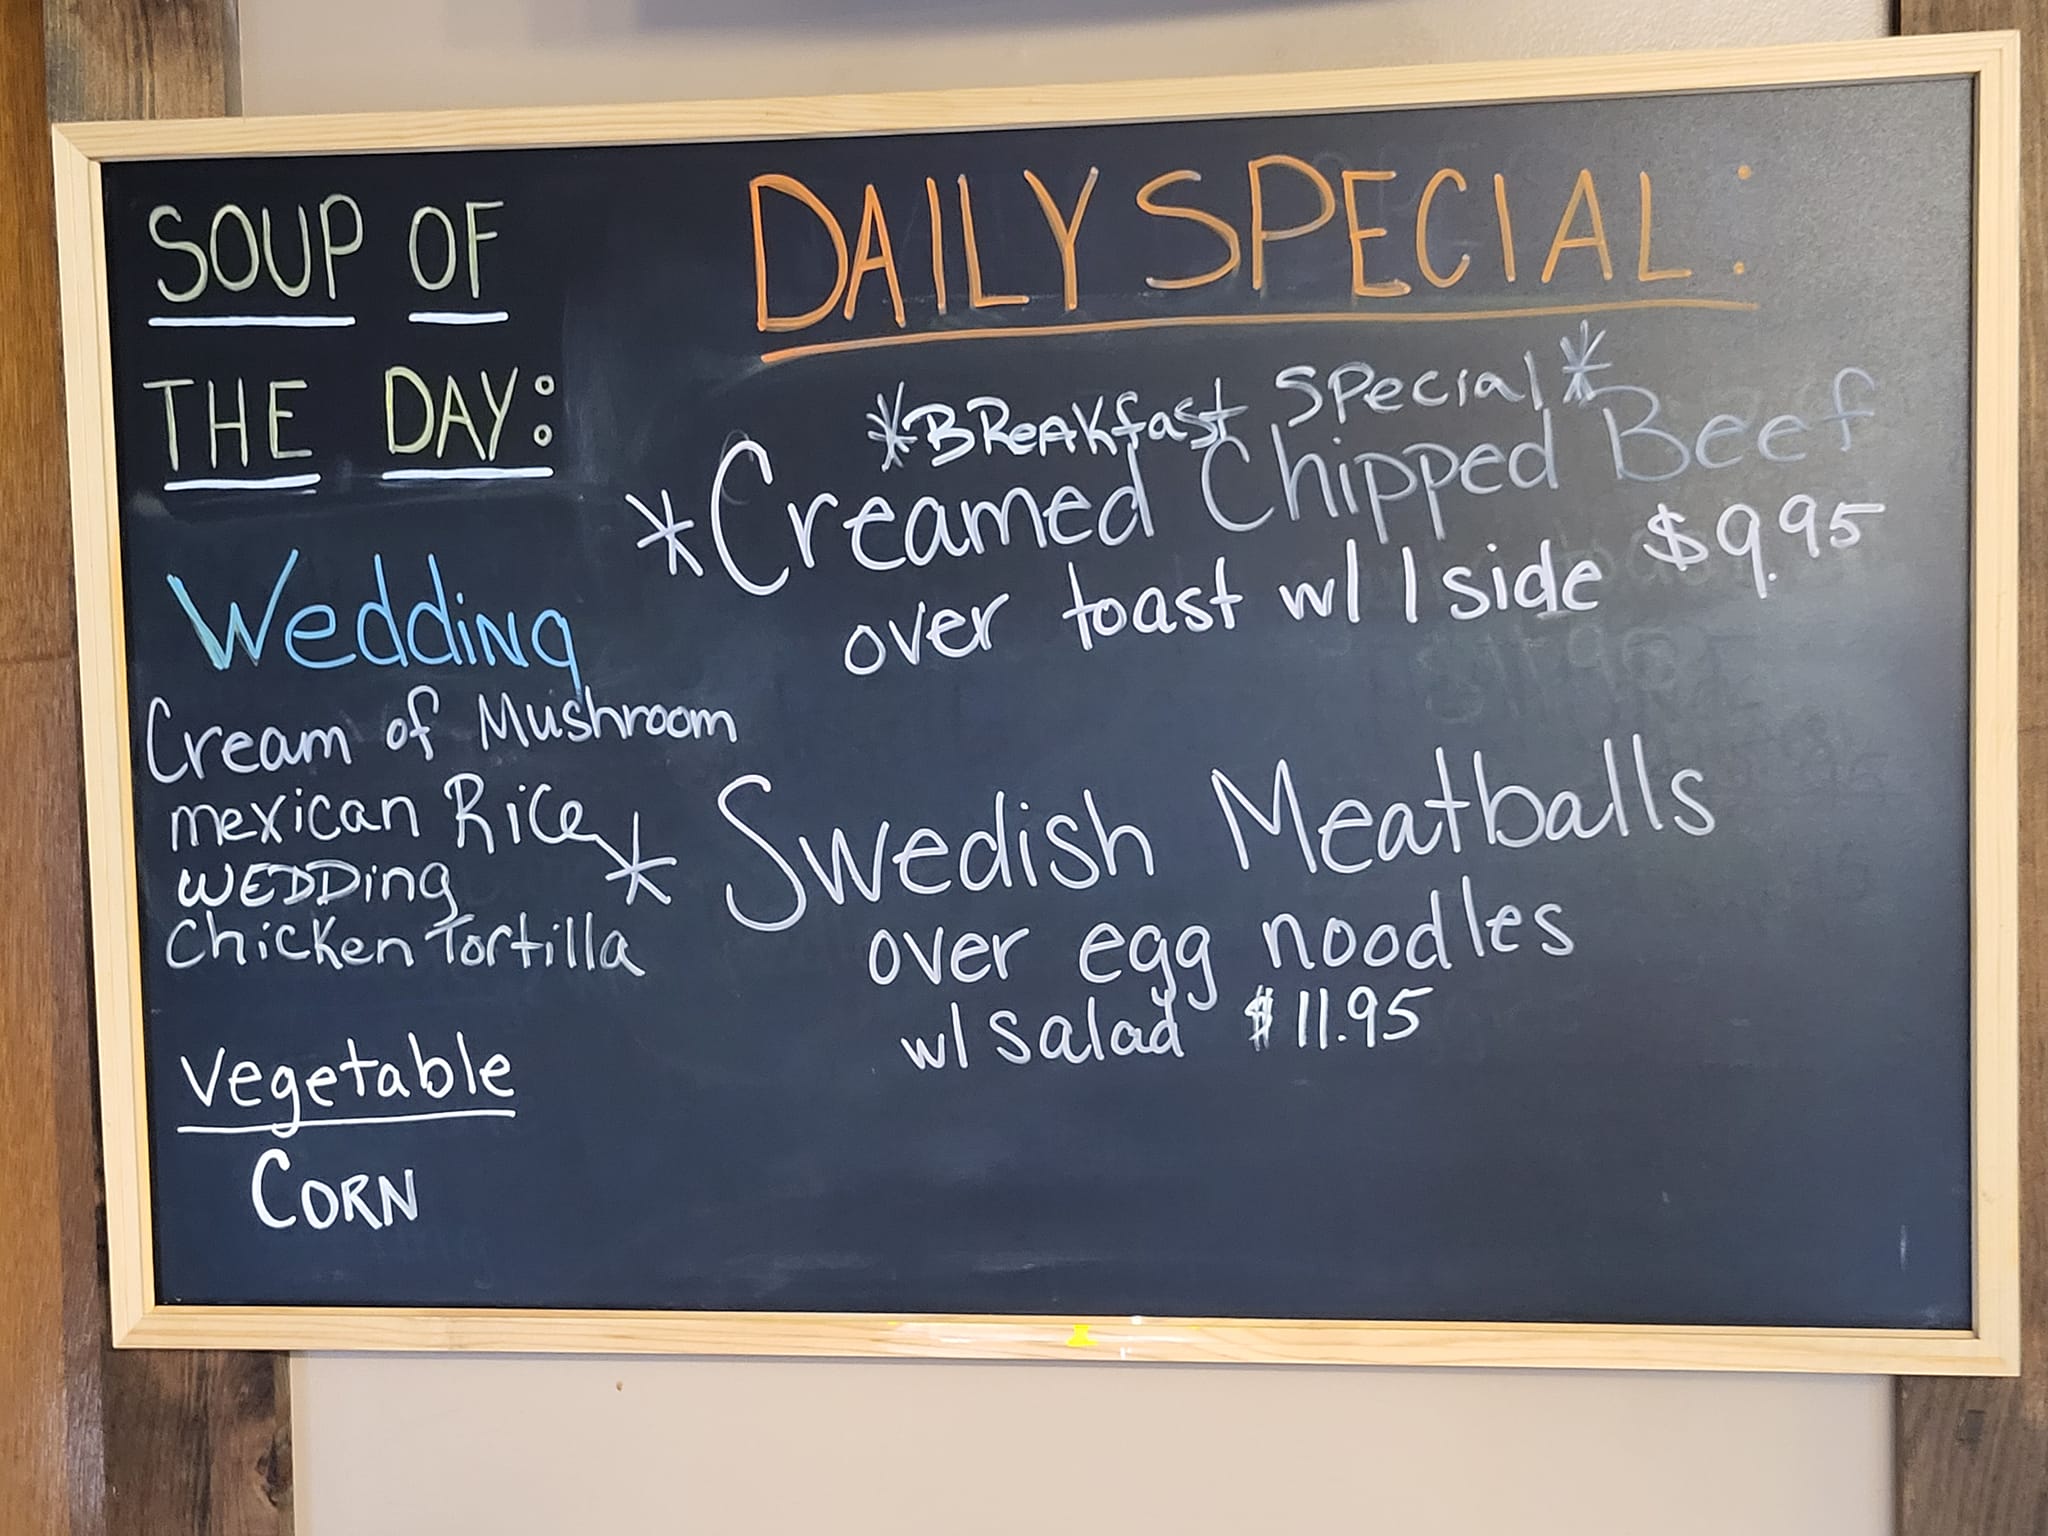 SOUP OF
THE DAY:
Wedding
Cream of Mushroom
mexican Rice
WEDDing
Chicken Tortilla
Vegetable
CORN
DAILY SPECIAL:
*BReaKfast Special*
*Creamed Chipped Beef
over toast w/ 1 side $9.95
* Swedish Meatballs
over egg noodles
w/ salad $11.95